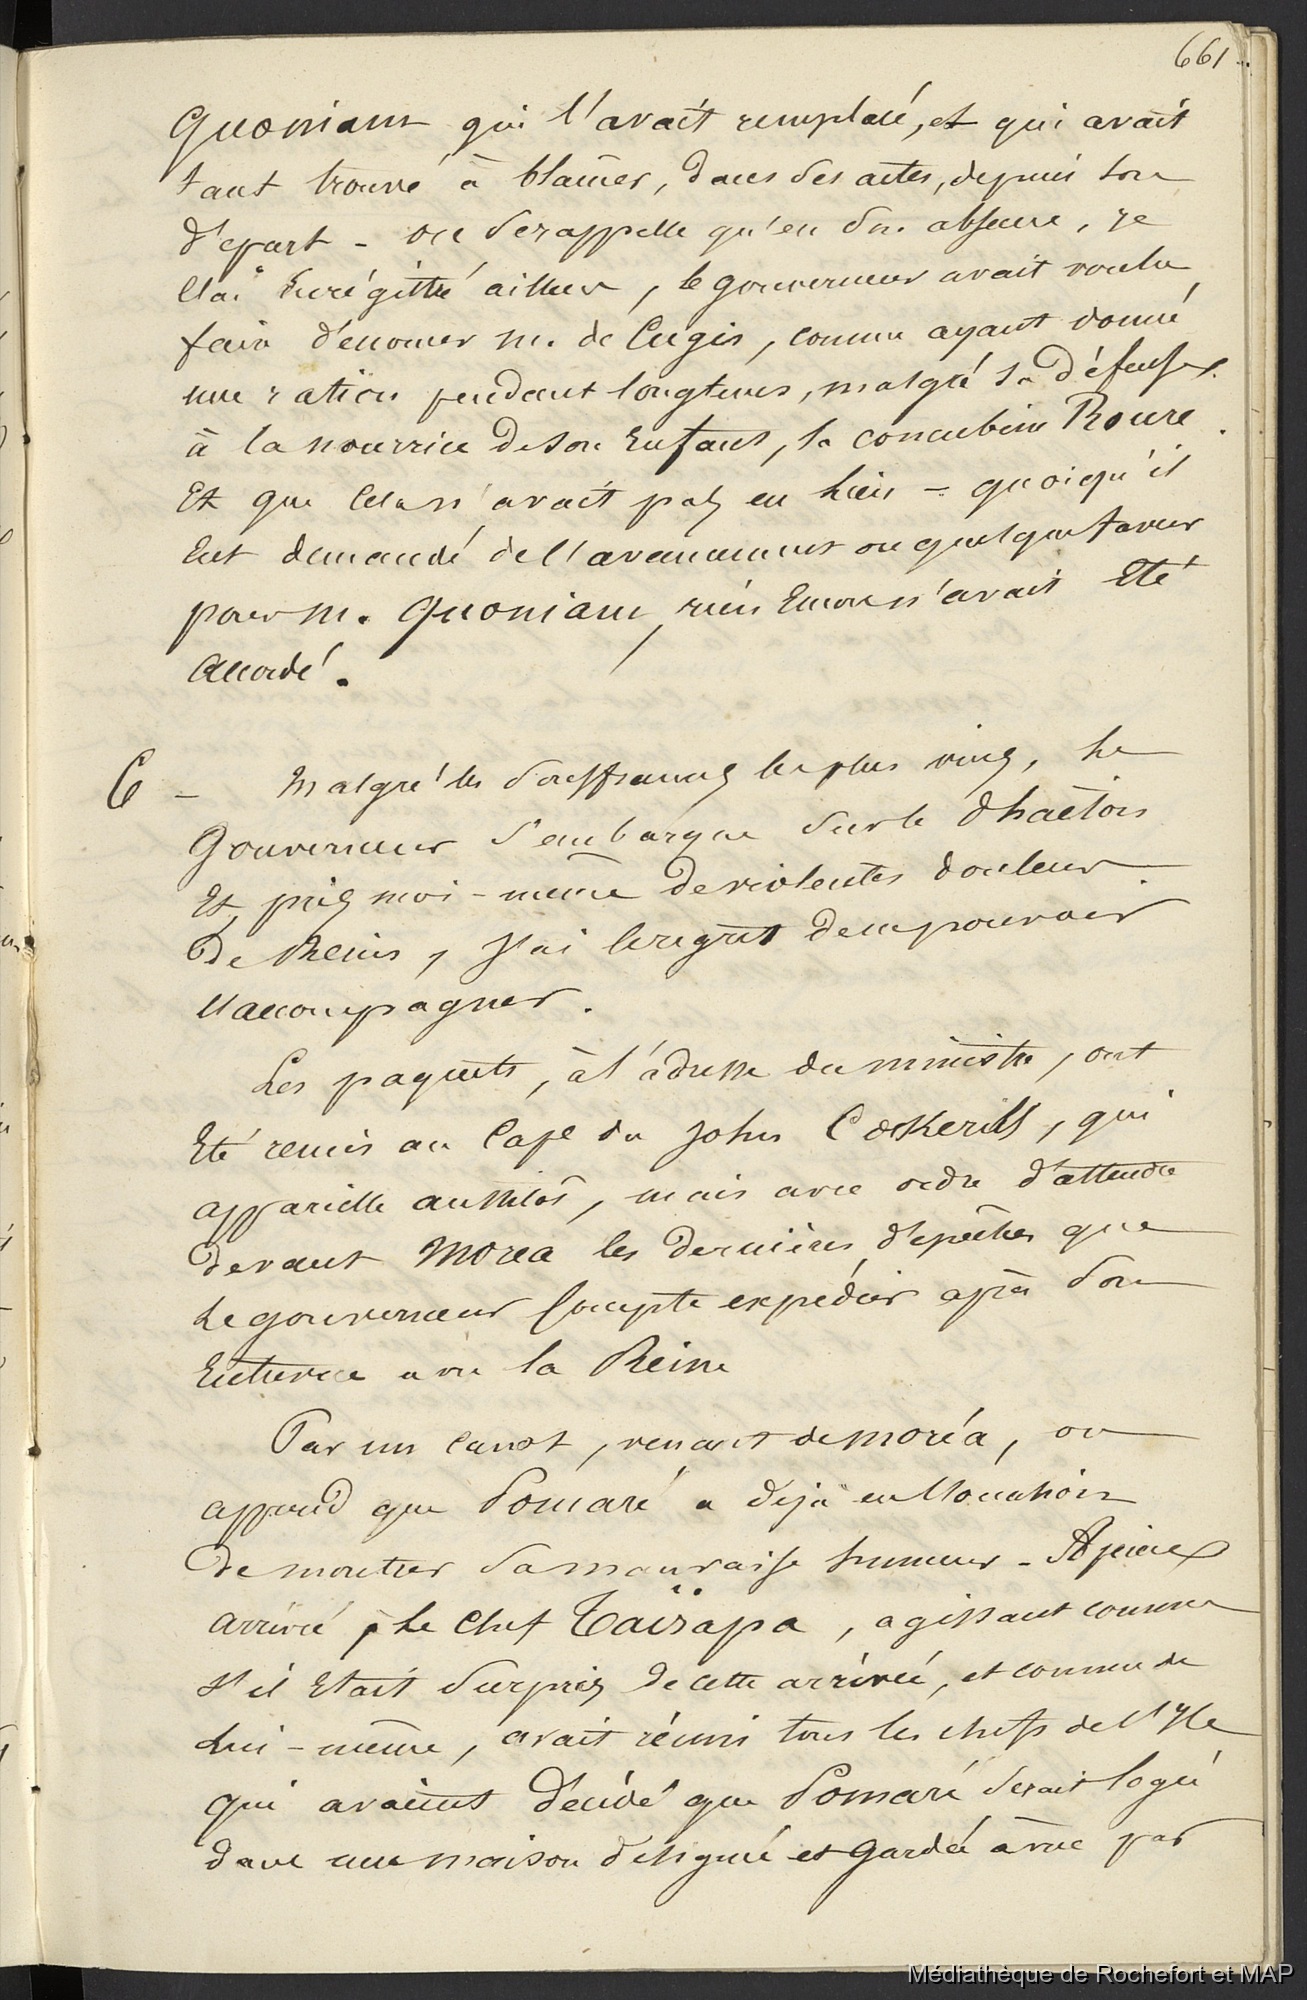 661
Quoniam qui l'avait remplacé, et qui avait
tant trouvé à blâmer, dans ses actes, depuis son
départ - on se rappelle qu'en son absence, je
l'ai enrégistré ailleurs, le gouverneur avait voulu
faire dénoncer m. de Cugis, comme ayant donné
une ration pendant longtems, malgré sa défense
à la nourrice de son Enfant, la concubine Roure
Et que cela n'avait pas eu lieu - quoiqu'il
Eut demandé de l'avancement ou quelque faveur
pour m. Quoniam, rien Encore n'avait Eté
accordé.
6 - Malgré les souffrances les plus vives, le
Gouverneur s'embarque sur le Phaëton
Et, pris moi-même de violentes douleurs
De Reins, j'ai le regret de ne pouvoir
l'accompagner.
Les paquets, à l'adresse du ministre, ont
Eté remis au Cape du John Cockerill, qui
appareille aussitôt, mais avec ordre d'attendre
devant Morea les dernières dépêches que
Le gouverneur compte expédier après son
Entrevue avec la Reine
Par un canot, venant de moréa, on
apprend que Pomaré a déjà eu l'occasion
de montrer sa mauvaise humeur - A peine
arrivée, Le Chef Taïrapa, agissant comme
s'il Etait surpris de cette arrivée, et comme de
Lui-même, avait réuni tous les chefs de l'Ile
qui avaient décidé que Pomaré serait logée
dans une maison désignée et gardée à vue par
Médiathèque de Rochefort et MAP